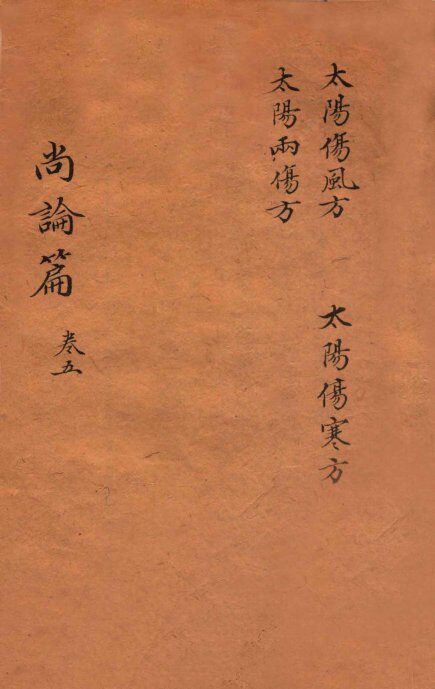 太陽傷風方
太陽傷寒方
太陽兩傷方
尚論篇
卷五